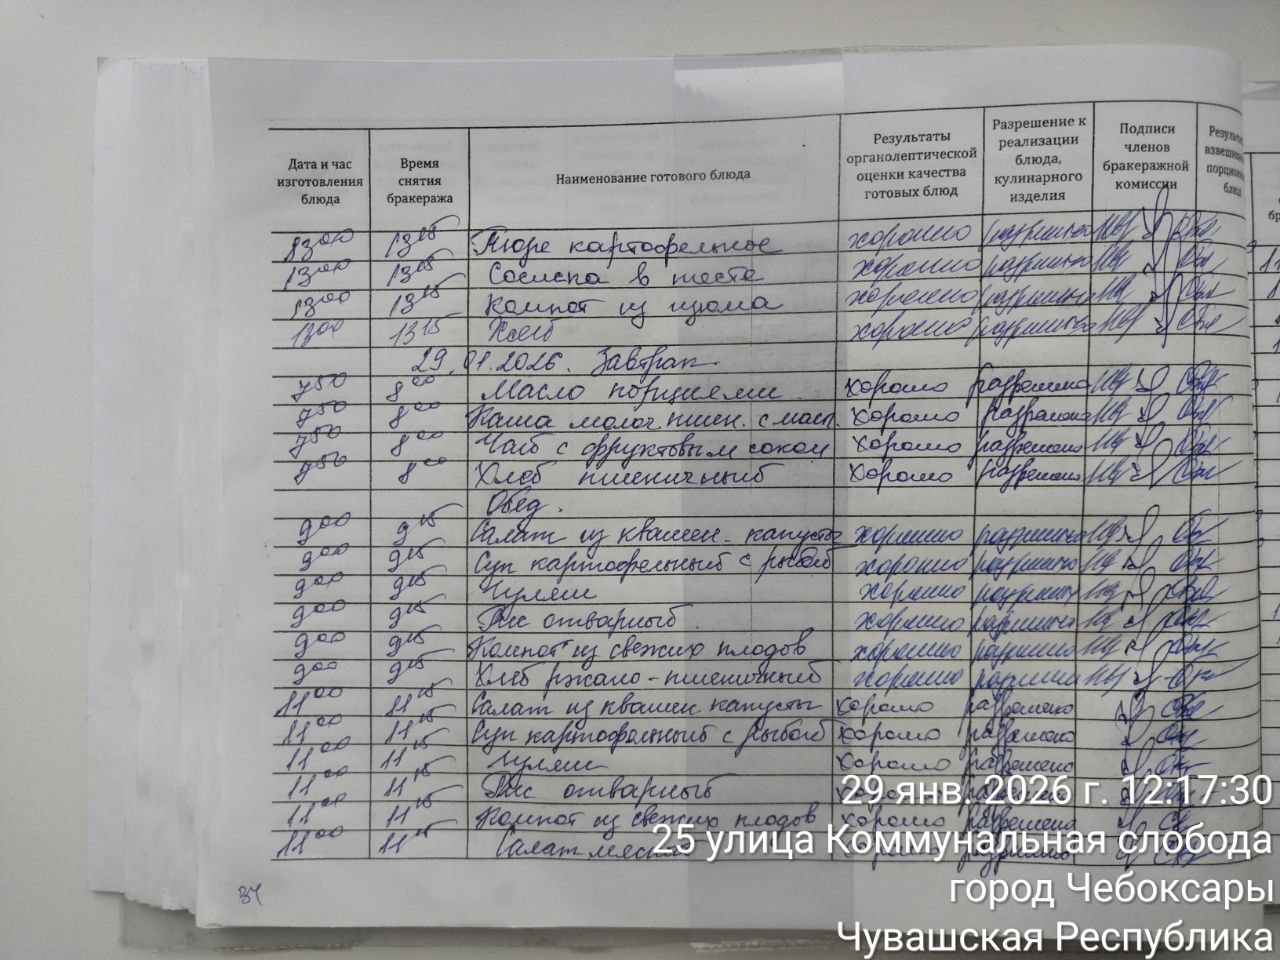 Дата и час изготовления блюда | Время снятия бракеража | Наименование готового блюда | Результаты органолептической оценки качества готовых блюд | Разрешение к реализации блюда, кулинарного изделия | Подписи членов бракеражной комиссии
13 00 13 15 Пюре картофельное хорошо разрешено
13 00 13 15 Сосиска в тесте хорошо разрешено
13 00 13 15 Компот из изюма хорошо разрешено
13 00 13 15 Хлеб хорошо разрешено
29.01.2026. Завтрак.
7 50 8 00 Масло порциями хорошо разрешено
7 50 8 00 Каша молоч. пшен. с масл. хорошо разрешено
7 50 8 00 Чай с фруктовым соком хорошо разрешено
7 50 8 00 Хлеб пшеничный хорошо разрешено
Обед.
9 00 9 15 Салат из квашен. капусты хорошо разрешено
9 00 9 15 Суп картофельный с рыбой хорошо разрешено
9 00 9 15 Гуляш хорошо разрешено
9 00 9 15 Рис отварный хорошо разрешено
9 00 9 15 Компот из свежих плодов хорошо разрешено
9 00 9 15 Хлеб ржано-пшеничный хорошо разрешено
11 00 11 15 Салат из квашен капусты хорошо разрешено
11 00 11 15 Суп картофельный с рыбой хорошо разрешено
11 00 11 15 Гуляш хорошо разрешено
11 00 11 15 Рис отварный
11 00 11 15 Компот из свежих плодов хорошо разрешено
11 00 11 15 Салат хорошо разрешено
34
29 янв. 2026 г. 12:17:30
25 улица Коммунальная слобода
город Чебоксары
Чувашская Республика